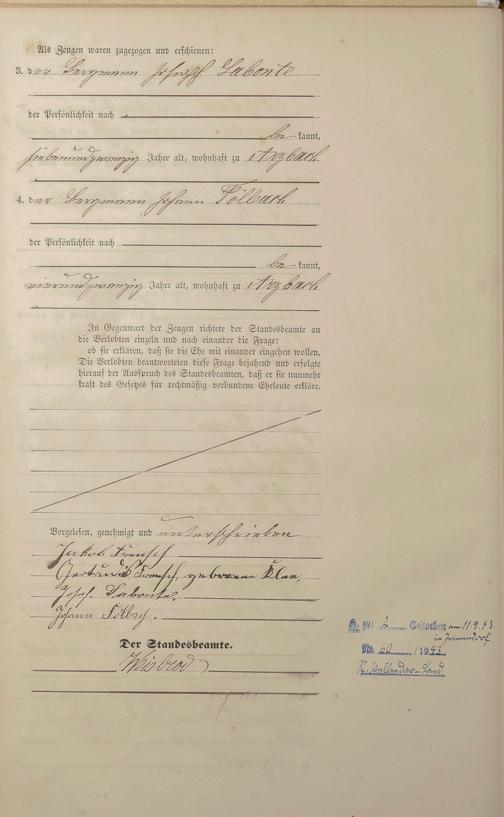 Als Zeugen waren zugezogen und erschienen:
3. der Bergmann Joseph Labonte
der Persönlichkeit nach
be kannt,
siebenundzwanzig Jahre alt, wohnhaft zu Arzbach
4. der Bergmann Johann Fölbach
der Persönlichkeit nach
be kannt,
vierundzwanzig Jahre alt, wohnhaft zu Arzbach
In Gegenwart der Zeugen richtete der Standesbeamte an
die Verlobten einzeln und nach einander die Frage:
ob sie erklären, daß sie die Ehe mit einander eingehen wollen.
Die Verlobten beantworteten diese Frage bejahend und erfolgte
hierauf der Ausspruch des Standesbeamten, daß er sie nunmehr
kraft des Gesetzes für rechtmäßig verbundene Eheleute erkläre.
Vorgelesen, genehmigt und unterschrieben
Jakob
Gertrud geborene Klee.
Josef Labonte.
Johann Fölbach.
Der Standesbeamte.
Weisbrod
Gestorben am 11.9.43
in Immendorf
Nr. 60 / 1943
Vallendar-Land